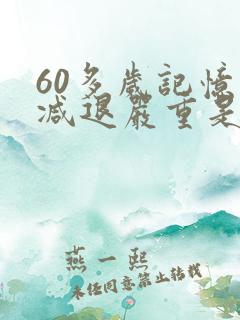 60多歲記憶
減退嚴重是
燕一熙
未經同意禁止轉載